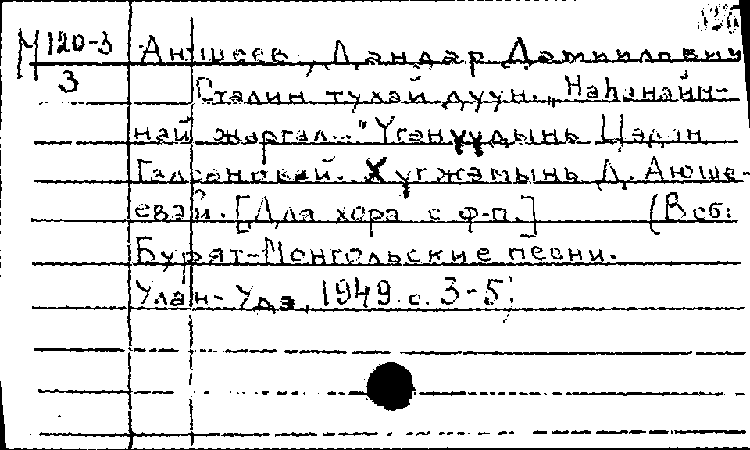 М 120-3
3
Аюшеев, Дандар Дампилович
Сталин тухай дуун. "Наһанайн-
най жаргал..." Үгэнүүдынь Цэдэн
Галсановай. Хүгжэмынь Д. Аюше-
евэй. [Для хора с ф-п.] (В сб:
Бурят-Монгольские песни.
Улан-Удэ, 1949. с. 3-5;